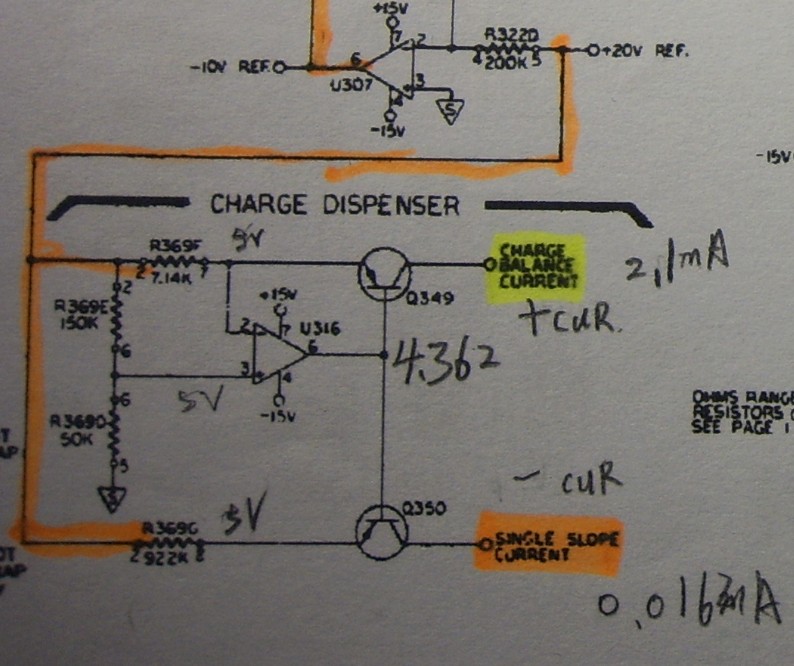 +15V
7
2
R322D
4 200K 5
+20V REF.
-10V REF.
6
U307
3
4
S
-15V
-15V
CHARGE DISPENSER
R369F
5V
2 7.14K 7
CHARGE
BALANCE
CURRENT
2,1mA
Q349
+CUR.
2
R369E
150K
6
+15V
2
7
U316
6
3
4
-15V
4.362
5V
6
R369D
50K
5
S
OHMS RANG
RESISTORS
SEE PAGE 1
- CUR
Q350
R369G
2 922K 2
5V
SINGLE SLOPE
CURRENT
0.016mA